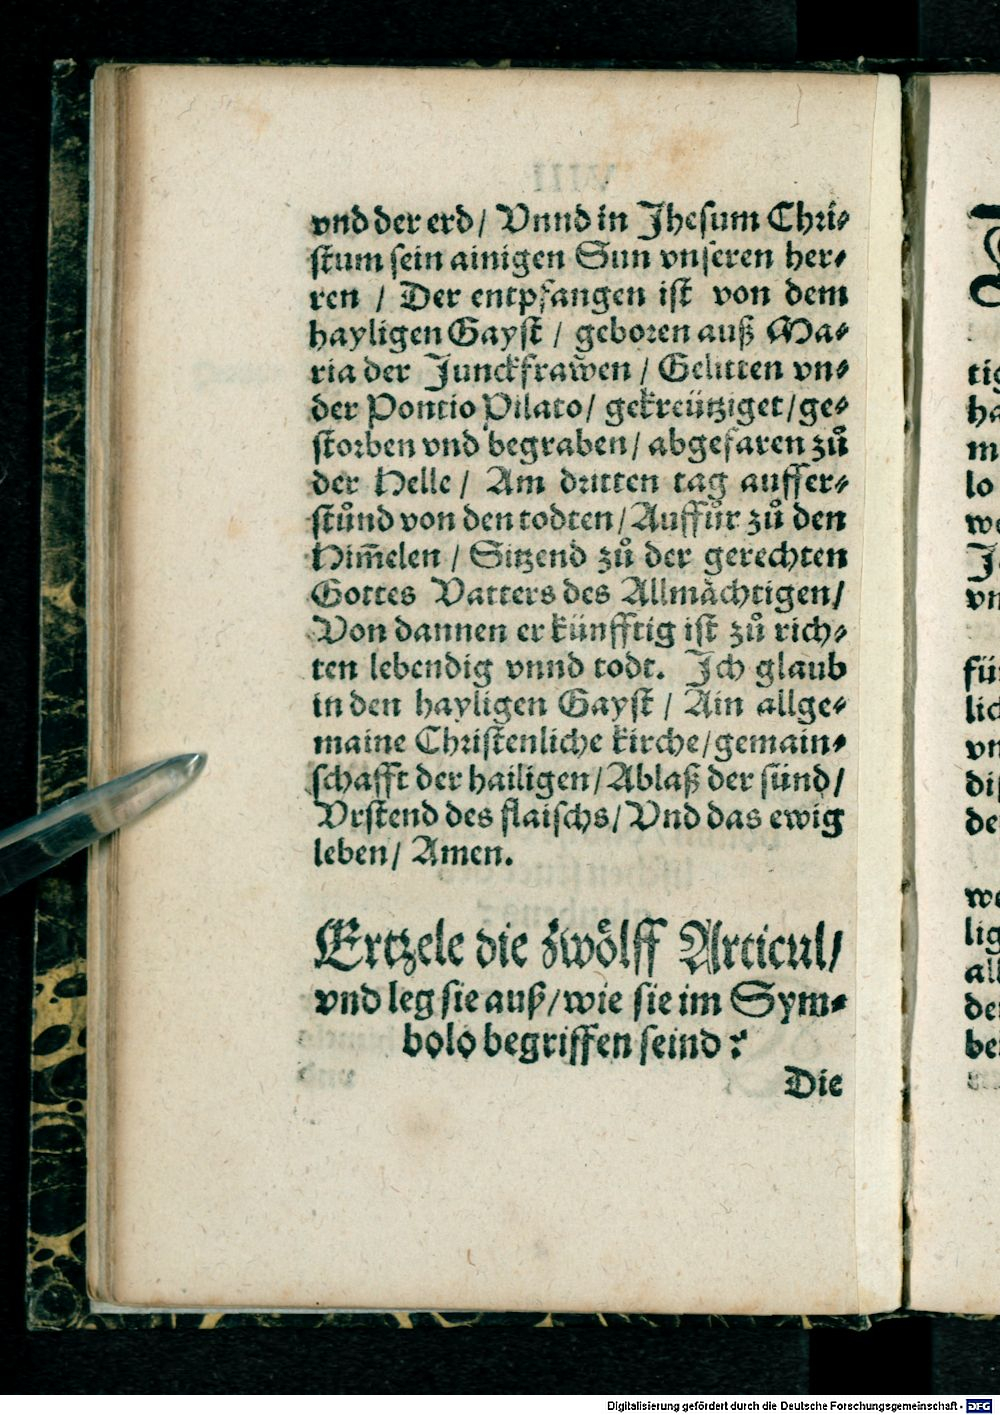 vnd der erd / Vnnd in Jhesum Chri⸗
stum sein ainigen Sun vnseren her⸗
ren / Der entpfangen ist von dem
hayligen Gayst / geboren auß Ma⸗
ria der Junckfraẅen / Gelitten vn⸗
der Pontio Pilato / gekreütziget / ge⸗
storben vnd begraben / abgefaren zů
der Helle / Am dritten tag auffer⸗
stůnd von den todten / Auffůr zů den
Him̃elen / Sitzend zů der gerechten
Gottes Vatters des Allmächtigen /
Von dannen er künfftig ist zů rich⸗
ten lebendig vnnd todt. Ich glaub
in den hayligen Gayst / Ain allge⸗
maine Christenliche kirche / gemain⸗
schafft der hailigen / Ablaß der sünd /
Vrstend des flaischs / Vnd das ewig
leben / Amen.
Ertzele die zwölff Articul /
vnd leg sie auß / wie sie im Sym⸗
bolo begriffen seind?
Die
Digitalisierung gefördert durch die Deutsche Forschungsgemeinschaft - DFG